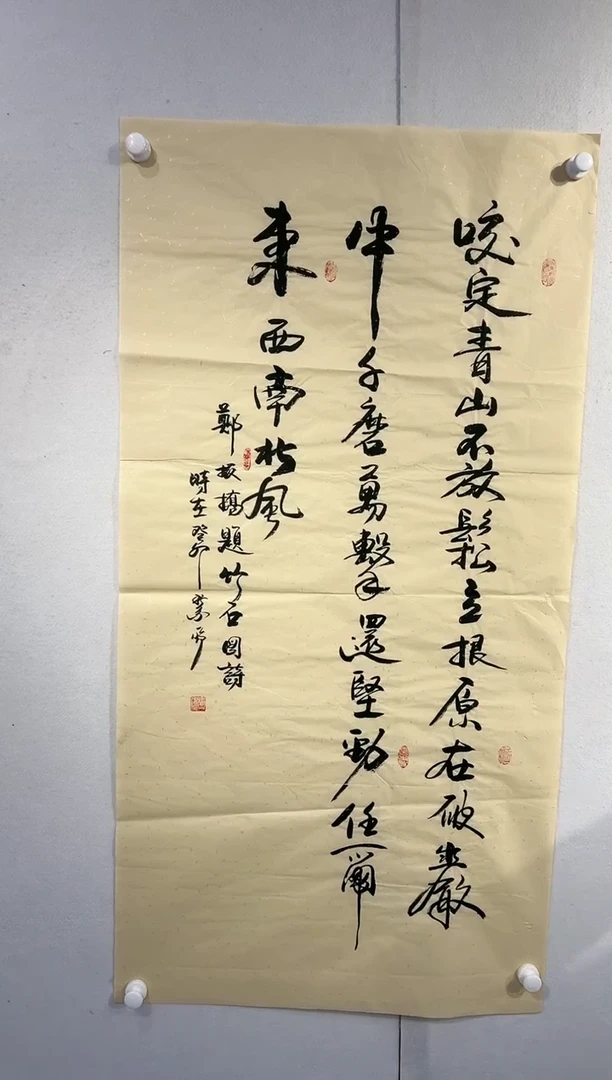 咬定青山不放鬆立根原在破巖
中千磨萬擊還堅勁任爾
東西南北風
鄭板橋題竹石图詩
時在癸卯